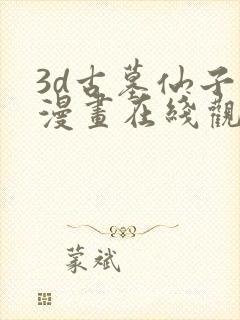 3d古墓仙子
漫畫在綫觀
蒙斌